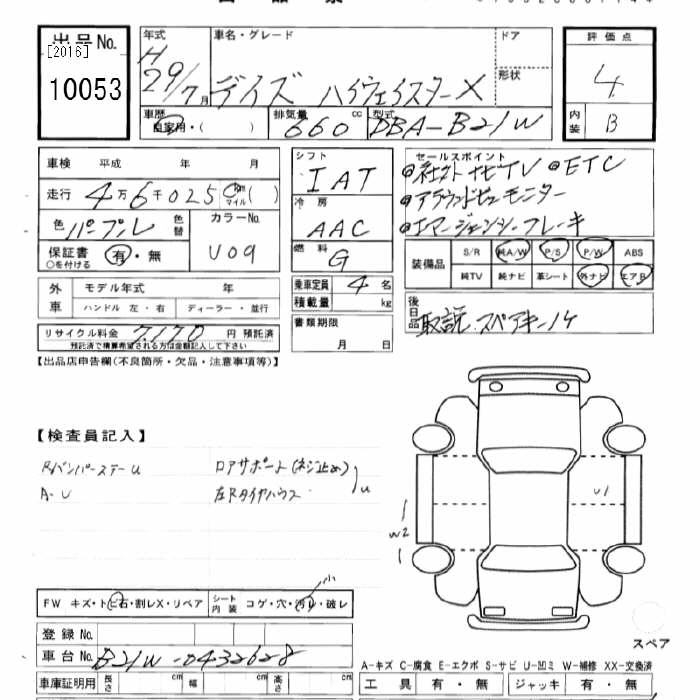 出品No.
[2016]
10053
年式
H29/7月
車名・グレード
デイズ ハイウェイスターX
ドア
形状
評価点
4
内装
B
車歴
自家用・( )
排気量
660cc
型式
DBA-B21W
車検 平成 年 月
走行 4万6千025 km マイル ( )
色 パープル 色替
カラーNo.
V09
保証書 有・無
○を付ける
シフト
IAT
冷房
AAC
燃料
G
乗車定員 4名
積載量 kg
書類期限
月 日
セールスポイント
社外ナビTV ETC
アラウンドビューモニター
エマージェンシーブレーキ
装備品
S/R 純A/W P/S P/W ABS
純TV 純ナビ 革シート 外ナビ エアB
後日品
取説.スペアキー1ケ
外車
モデル年式 年
ハンドル 左・右 ディーラー・並行
リサイクル料金 7,170 円 預託済
預託済で積算希望される方は金額記入して下さい
【出品店申告欄(不良箇所・欠品・注意事項等)】
【検査員記入】
RバンパーステーU
A-U
ロアサポート(ネジ止め)
左Rタイヤハウス
U
W2
U1
スペア
FW キズ・トビ石・割レX・リペア
シート内装 コゲ・穴・汚レ・破レ
小
登録No.
車台No. B21W-0432628
車庫証明用 長さ cm 幅 cm 高さ cm
A-キズ C-腐食 E-エクボ S-サビ U-凹ミ W-補修 XX-交換済
工具 有・無 ジャッキ 有・無